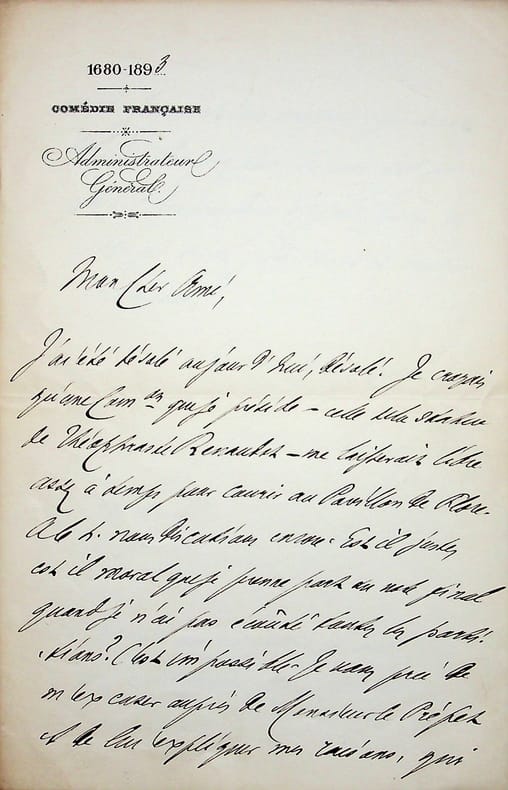 1680-1893
COMÉDIE FRANÇAISE
Administrateur
Général
Mon cher Aimé,
J'ai été désolé aujourd'hui, désolé! Je croyais
qu'une Com^on que je préside – celle de la statue
de Théophraste Renaudot – me laisserait libre
assez à temps pour courir au Pavillon de Flore.
A 6 h. nous discutions encore. Est il juste,
est il moral que je prenne part au vote final
quand je n'ai pas écouté toutes les parti-
tions? C'est impossible. Je vous prie de
m'excuser auprès de Monsieur le Préfet
et de lui expliquer mes raisons, qui